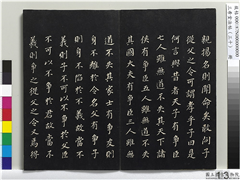 親揚名則聞命矣敢問子
從父之令可謂孝乎子曰是
何言與昔者天子有爭臣
七人雖無道不失其天下諸
侯有爭臣五人雖無道不失
其國大夫有爭臣三人雖無
道不失其家士有爭友則
身不離於令名父有爭子
則身不陷於不義故當不
義則子不可以不爭於父臣
不可以不爭於君故當不
義則爭之從父之令又焉得